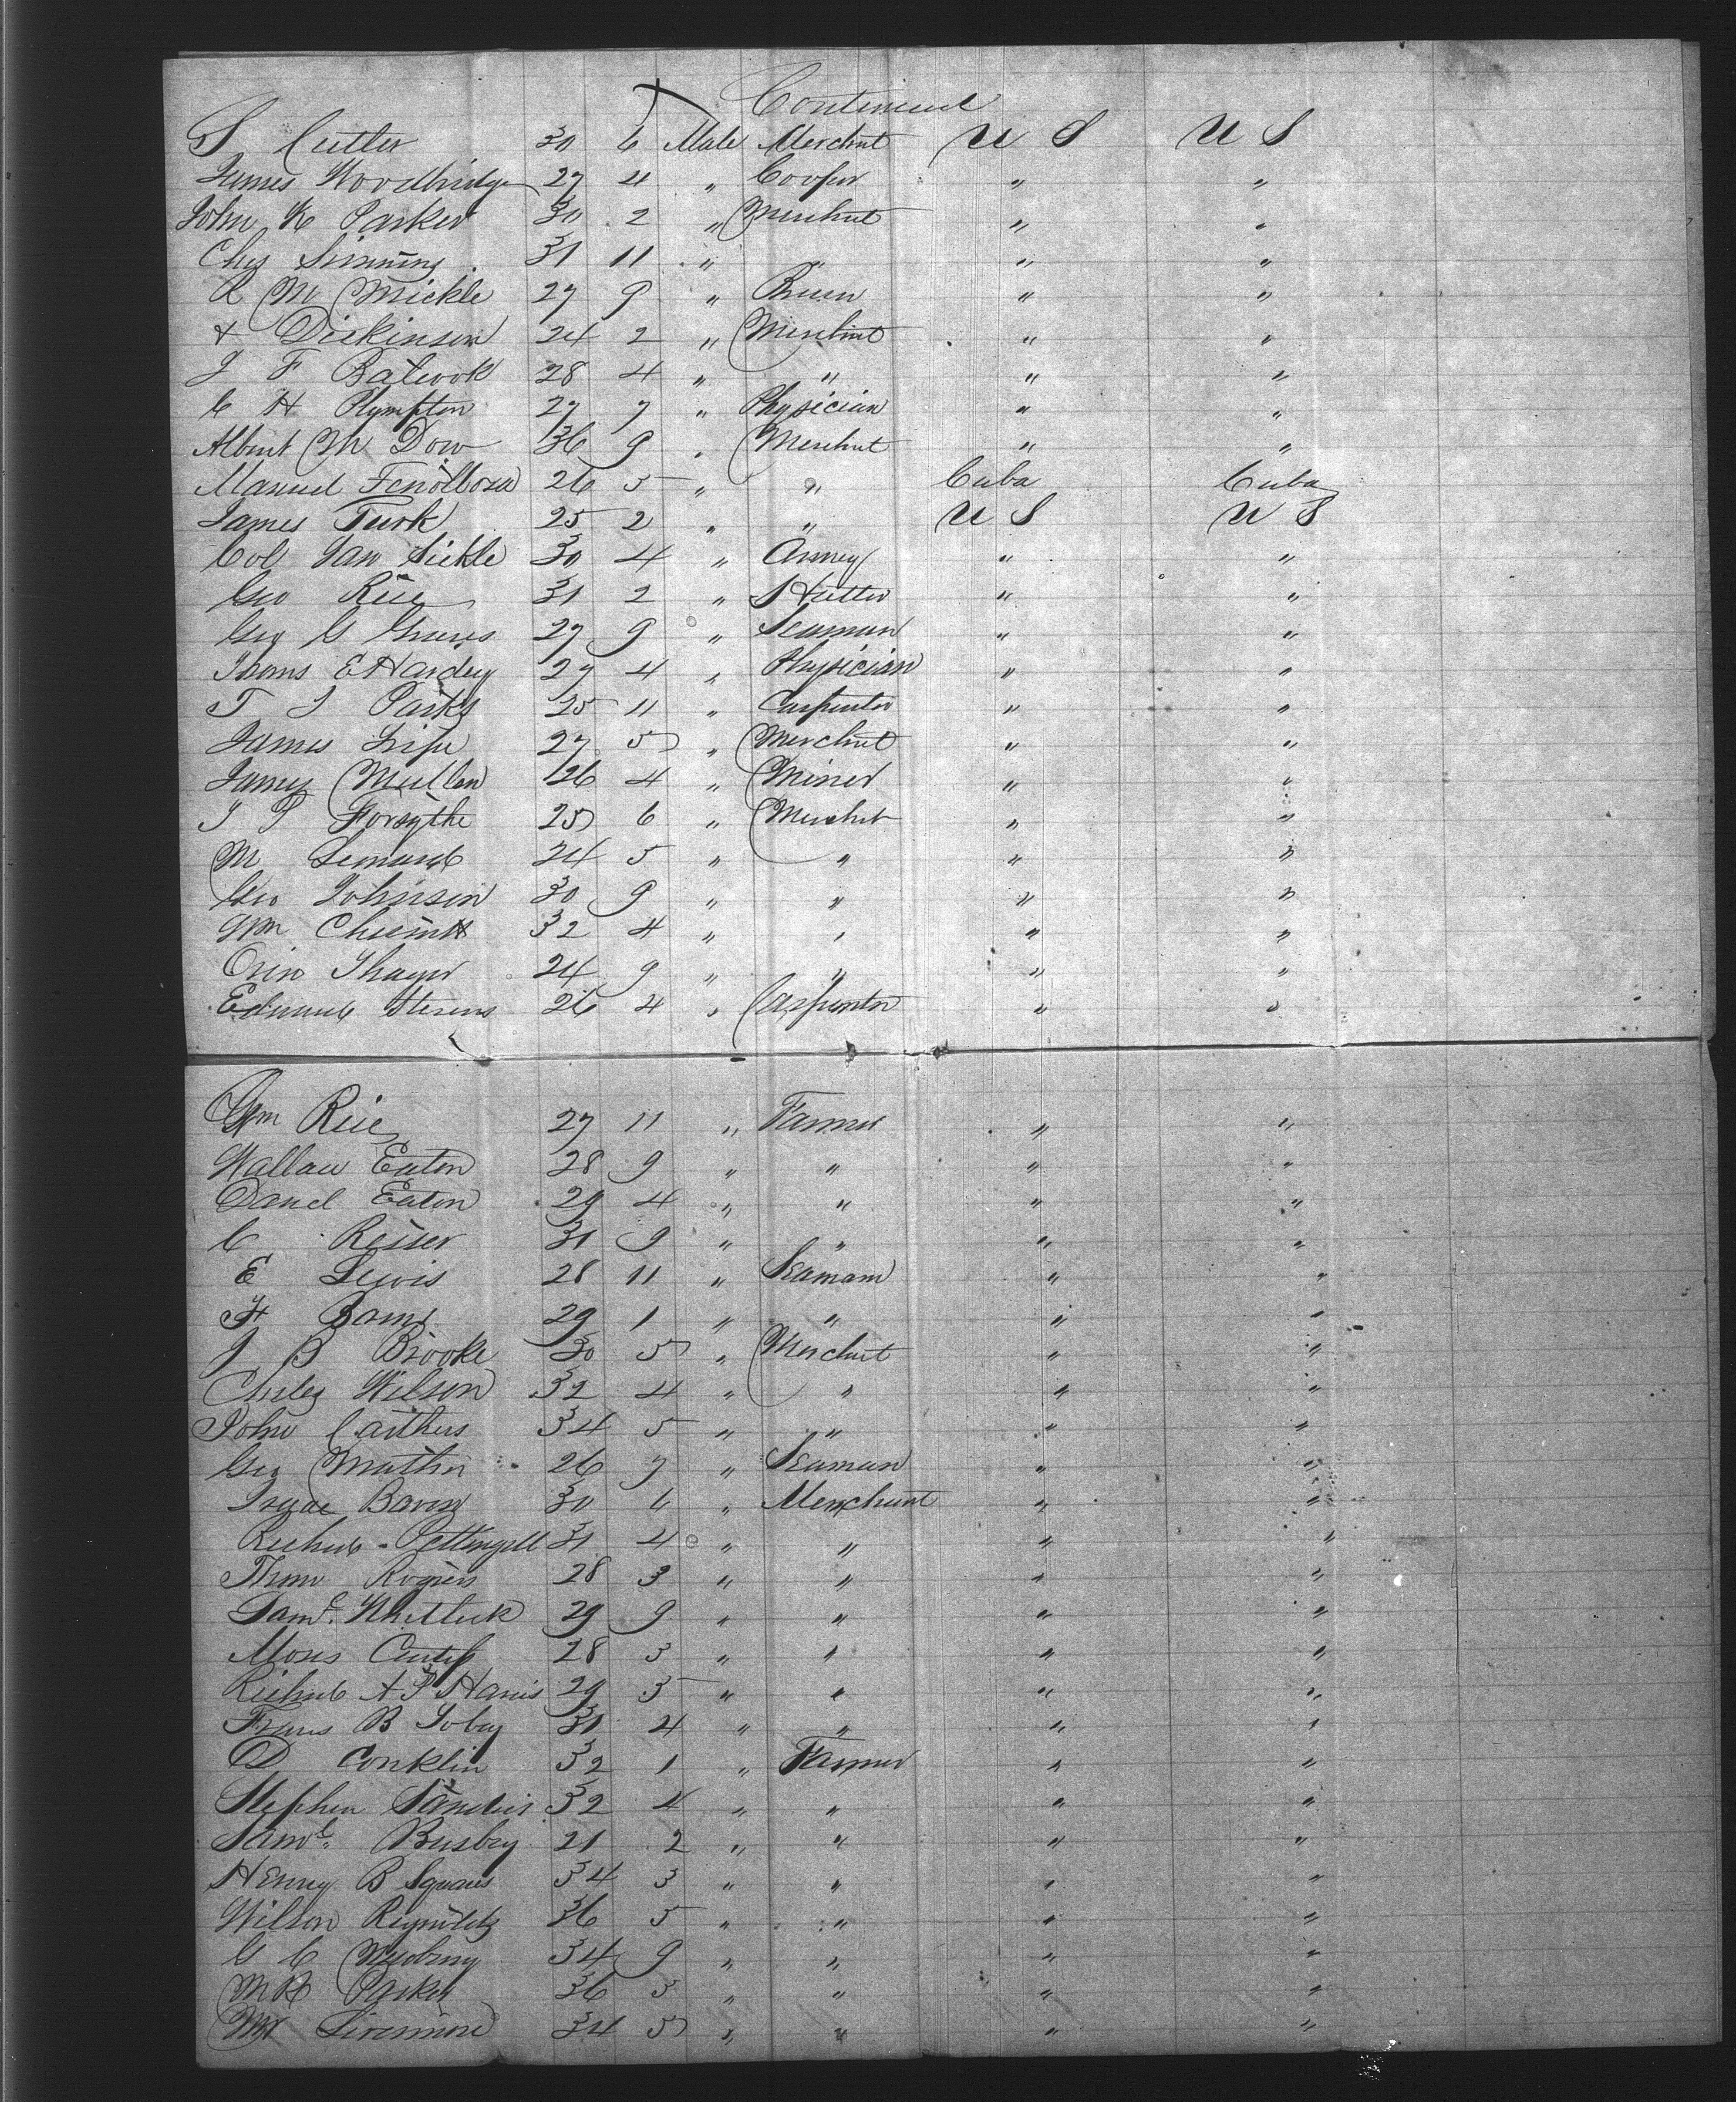 Continued
S Cutler 30 6 Male Merchnt U S U S
James Woodbridge 27 4 " Cooper " "
John K Parker 30 2 " Merchnt " "
Chas 31 11 " " " "
R M Mickle 27 9 " " "
Dickinson 24 2 " Merchnt " "
J F 28 4 " " " "
C H Plympton 27 7 " Physician " "
Albert M Dow 36 9 " Merchnt " "
Manuel Fenollosa 26 5 " " Cuba Cuba
James Turk 25 2 " " U S U S
Col Van Sickle 30 4 " Armey " "
Geo Rice 31 2 " " "
Geo G Graves 27 9 " Seaman " "
Thoms E Hardey 27 4 " Physician " "
T J Parks 25 11 " Carpenter " "
James 27 5 " Merchnt " "
James Mullen 26 4 " Miner " "
J P Forsythe 25 6 " Merchnt " "
M Lenard 24 5 " " " "
Geo Johnson 30 9 " " " "
Wm 32 4 " " " "
Orin Thayer 24 9 " " " "
Edmund Stevens 26 4 " Carpenter " "
Wm Rice 27 11 " Farmer " "
Wallace Eaton 28 9 " " " "
Daniel Eaton 29 4 " " " "
C Reiser 31 9 " " " "
E Lewis 28 11 " Seamam " "
H 29 1 " " " "
J B Brooke 30 5 " Merchnt " "
Charles Wilson 32 4 " " " "
John Carthers 34 5 " " " "
Geo Mather 26 7 " Seaman " "
Isaac 30 6 " Merchant " "
Richard Pettingell 31 4 " " " "
Thom Rogers 28 3 " " " "
Saml. Whitlock 29 9 " " " "
Moses Curtis 28 3 " " " "
Richard A P Harris 29 5 " " " "
Frans B Tobey 31 4 " " " "
D Conklin 32 1 " Farmer " "
Stephen Sanders 32 4 " " " "
Saml. Busbey 21 2 " " " "
Henry B Squares 34 3 " " " "
Wilson Reynolds 36 5 " " " "
G C Newbury 34 9 " " " "
M R Parker 36 3 " " " "
Livermore 34 5 " " " "